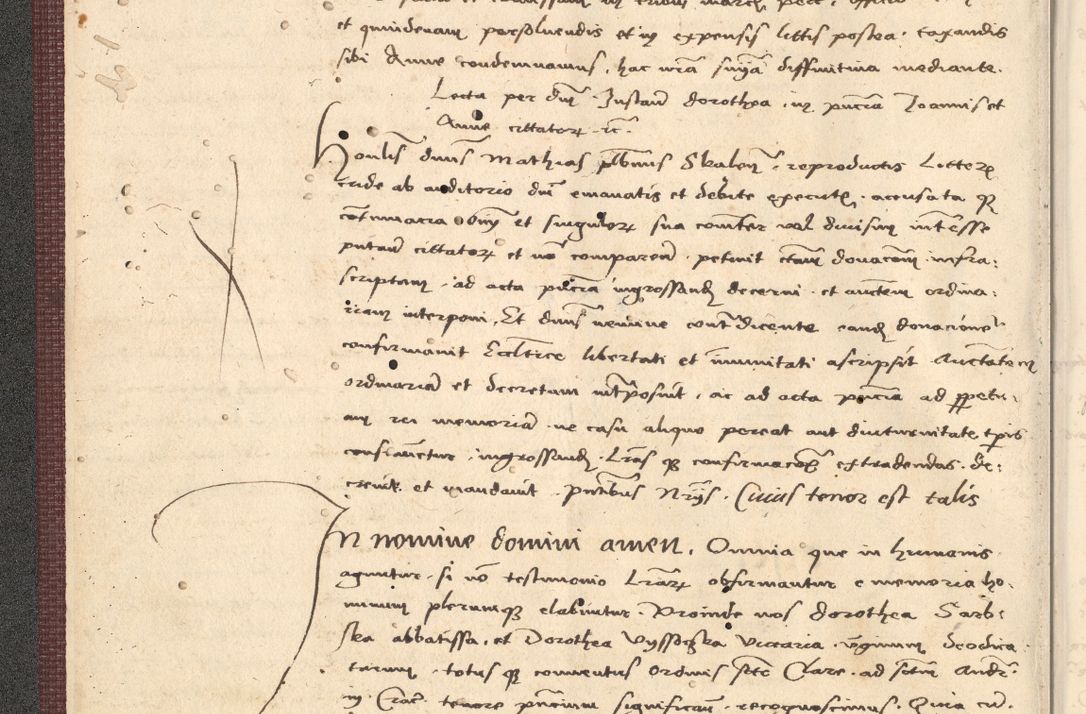 et quindenam persolvendis et in expensis littis postea taxandis
sibi Anne condemnamus, hac nrã suniã diffinitiva mediante.
Lecta per dnũ Instañ dorothea in pñcia Joannis et
Anne cittator. ic.
Honlis dnus Mathias plbnus Skalen reproductis Litteris
cride ab auditorio dni emanatis et debite executis accusata qz
cõtumacia omniũ et singulor sua comiter vel divisim intẽsse
putañ cittator et nõ compareñ petivit etiam donacom infra:
scriptam ad acta pñcia ingrossand decerni et auctem ordina:
riam interponi. Et dnus nemine contradicente eand donacione
confirmavit Ecclesiastice libertati et imunitati ascripsit Auctatem
ordinariã et decretum intposuit, ac ad acta pñcia ad ppetu:
am rei memoriã ne casu aliquo pereat aut diuturnitate tpis
ingrossand Lrãs qz confirmacois extradendas de:
crevit et mandavit pntibus Nrijs. Cuius tenor est talis
In nomine domini amen. Omnia que in humanis
aguntur si nõ testimonio Lrãr obfirmantur e memoria ho:
minum plerumqz elabuntur. Proinde nos dorothea Sarb:
ska abbatissa, et Dorothea Vyssocska Vicaria virginum deodica
tarum totus qz conventus Ordinis scte Clare ad sctm Andr.
in Crac. tenore pñcium significam recognoscimus. Quia cũ